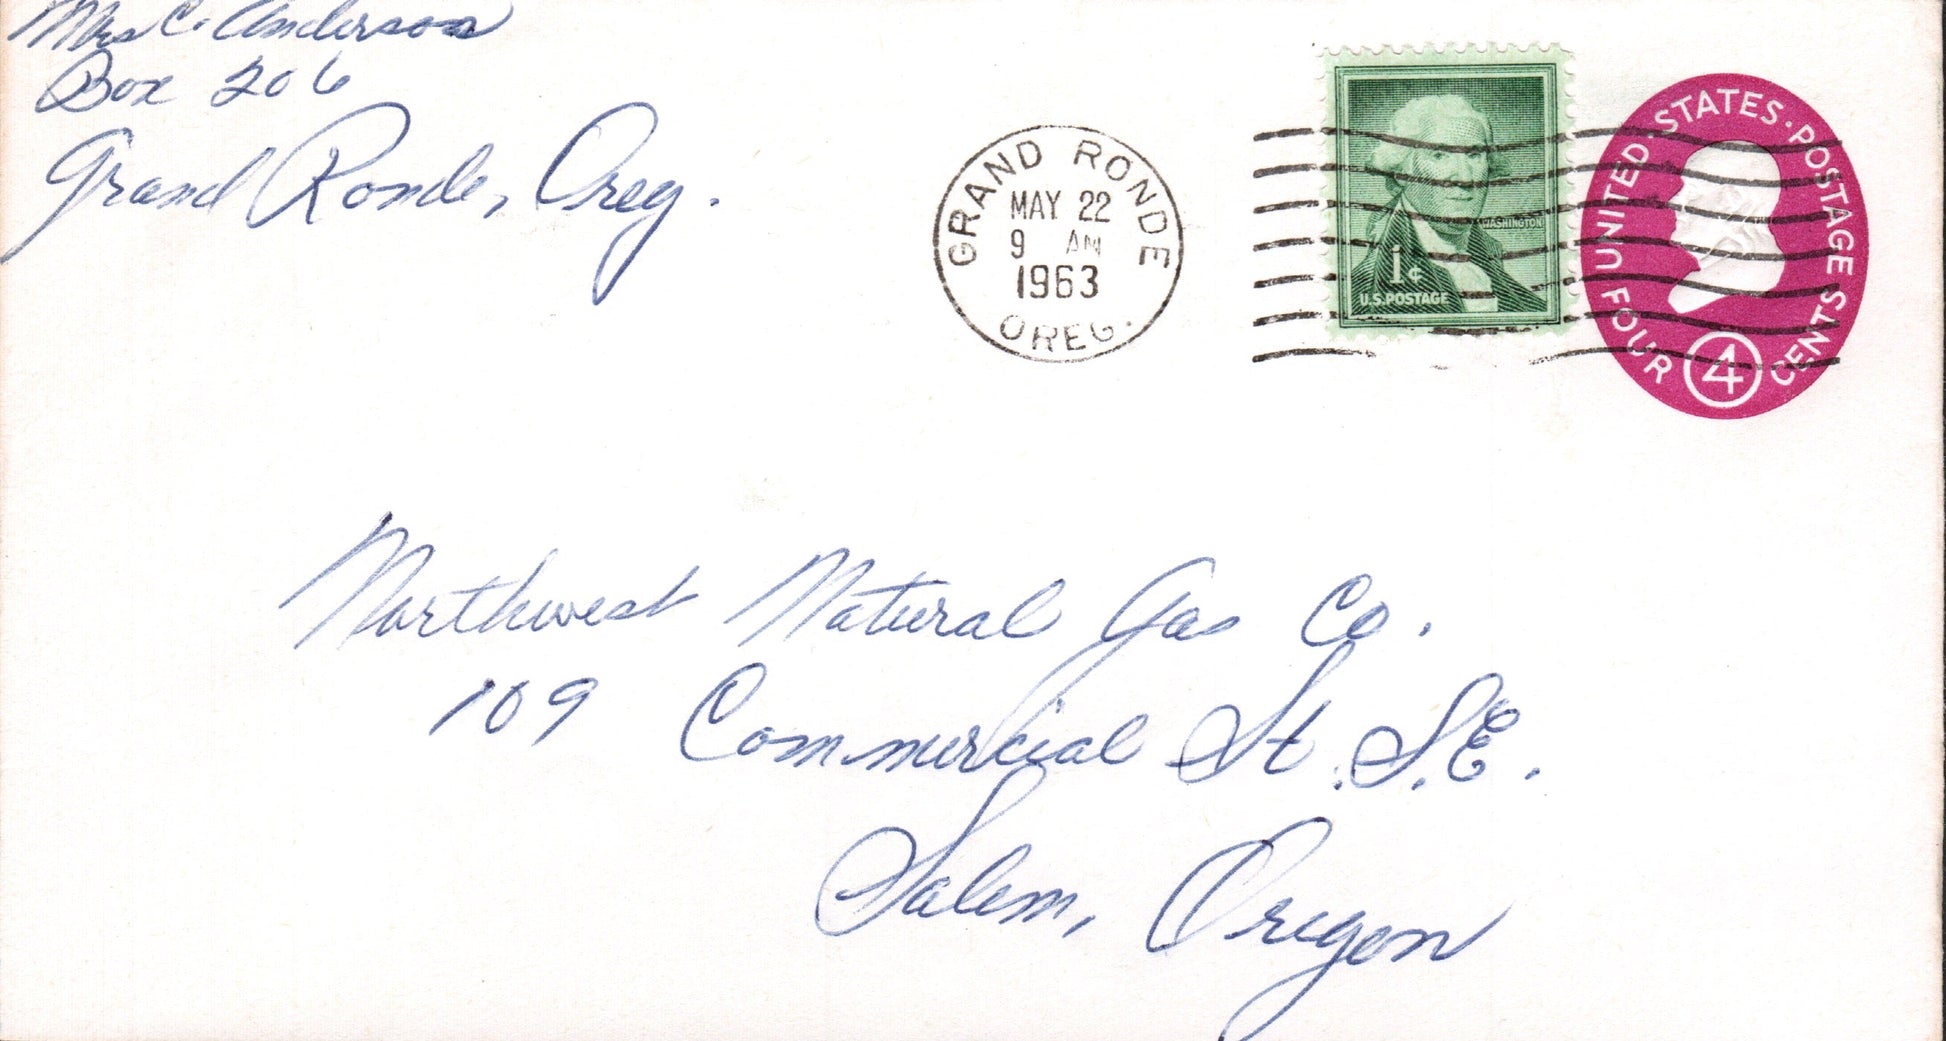 Mrs C. Anderson
Box 206
Grand Ronde, Oreg.
GRAND RONDE
MAY 22
9 AM
1963
OREG.
WASHINGTON
1¢
U.S.POSTAGE
UNITED·STATES·POSTAGE
FOUR 4 CENTS
Northwest Natural Gas Co.
109 Commercial St. S.E.
Salem, Oregon